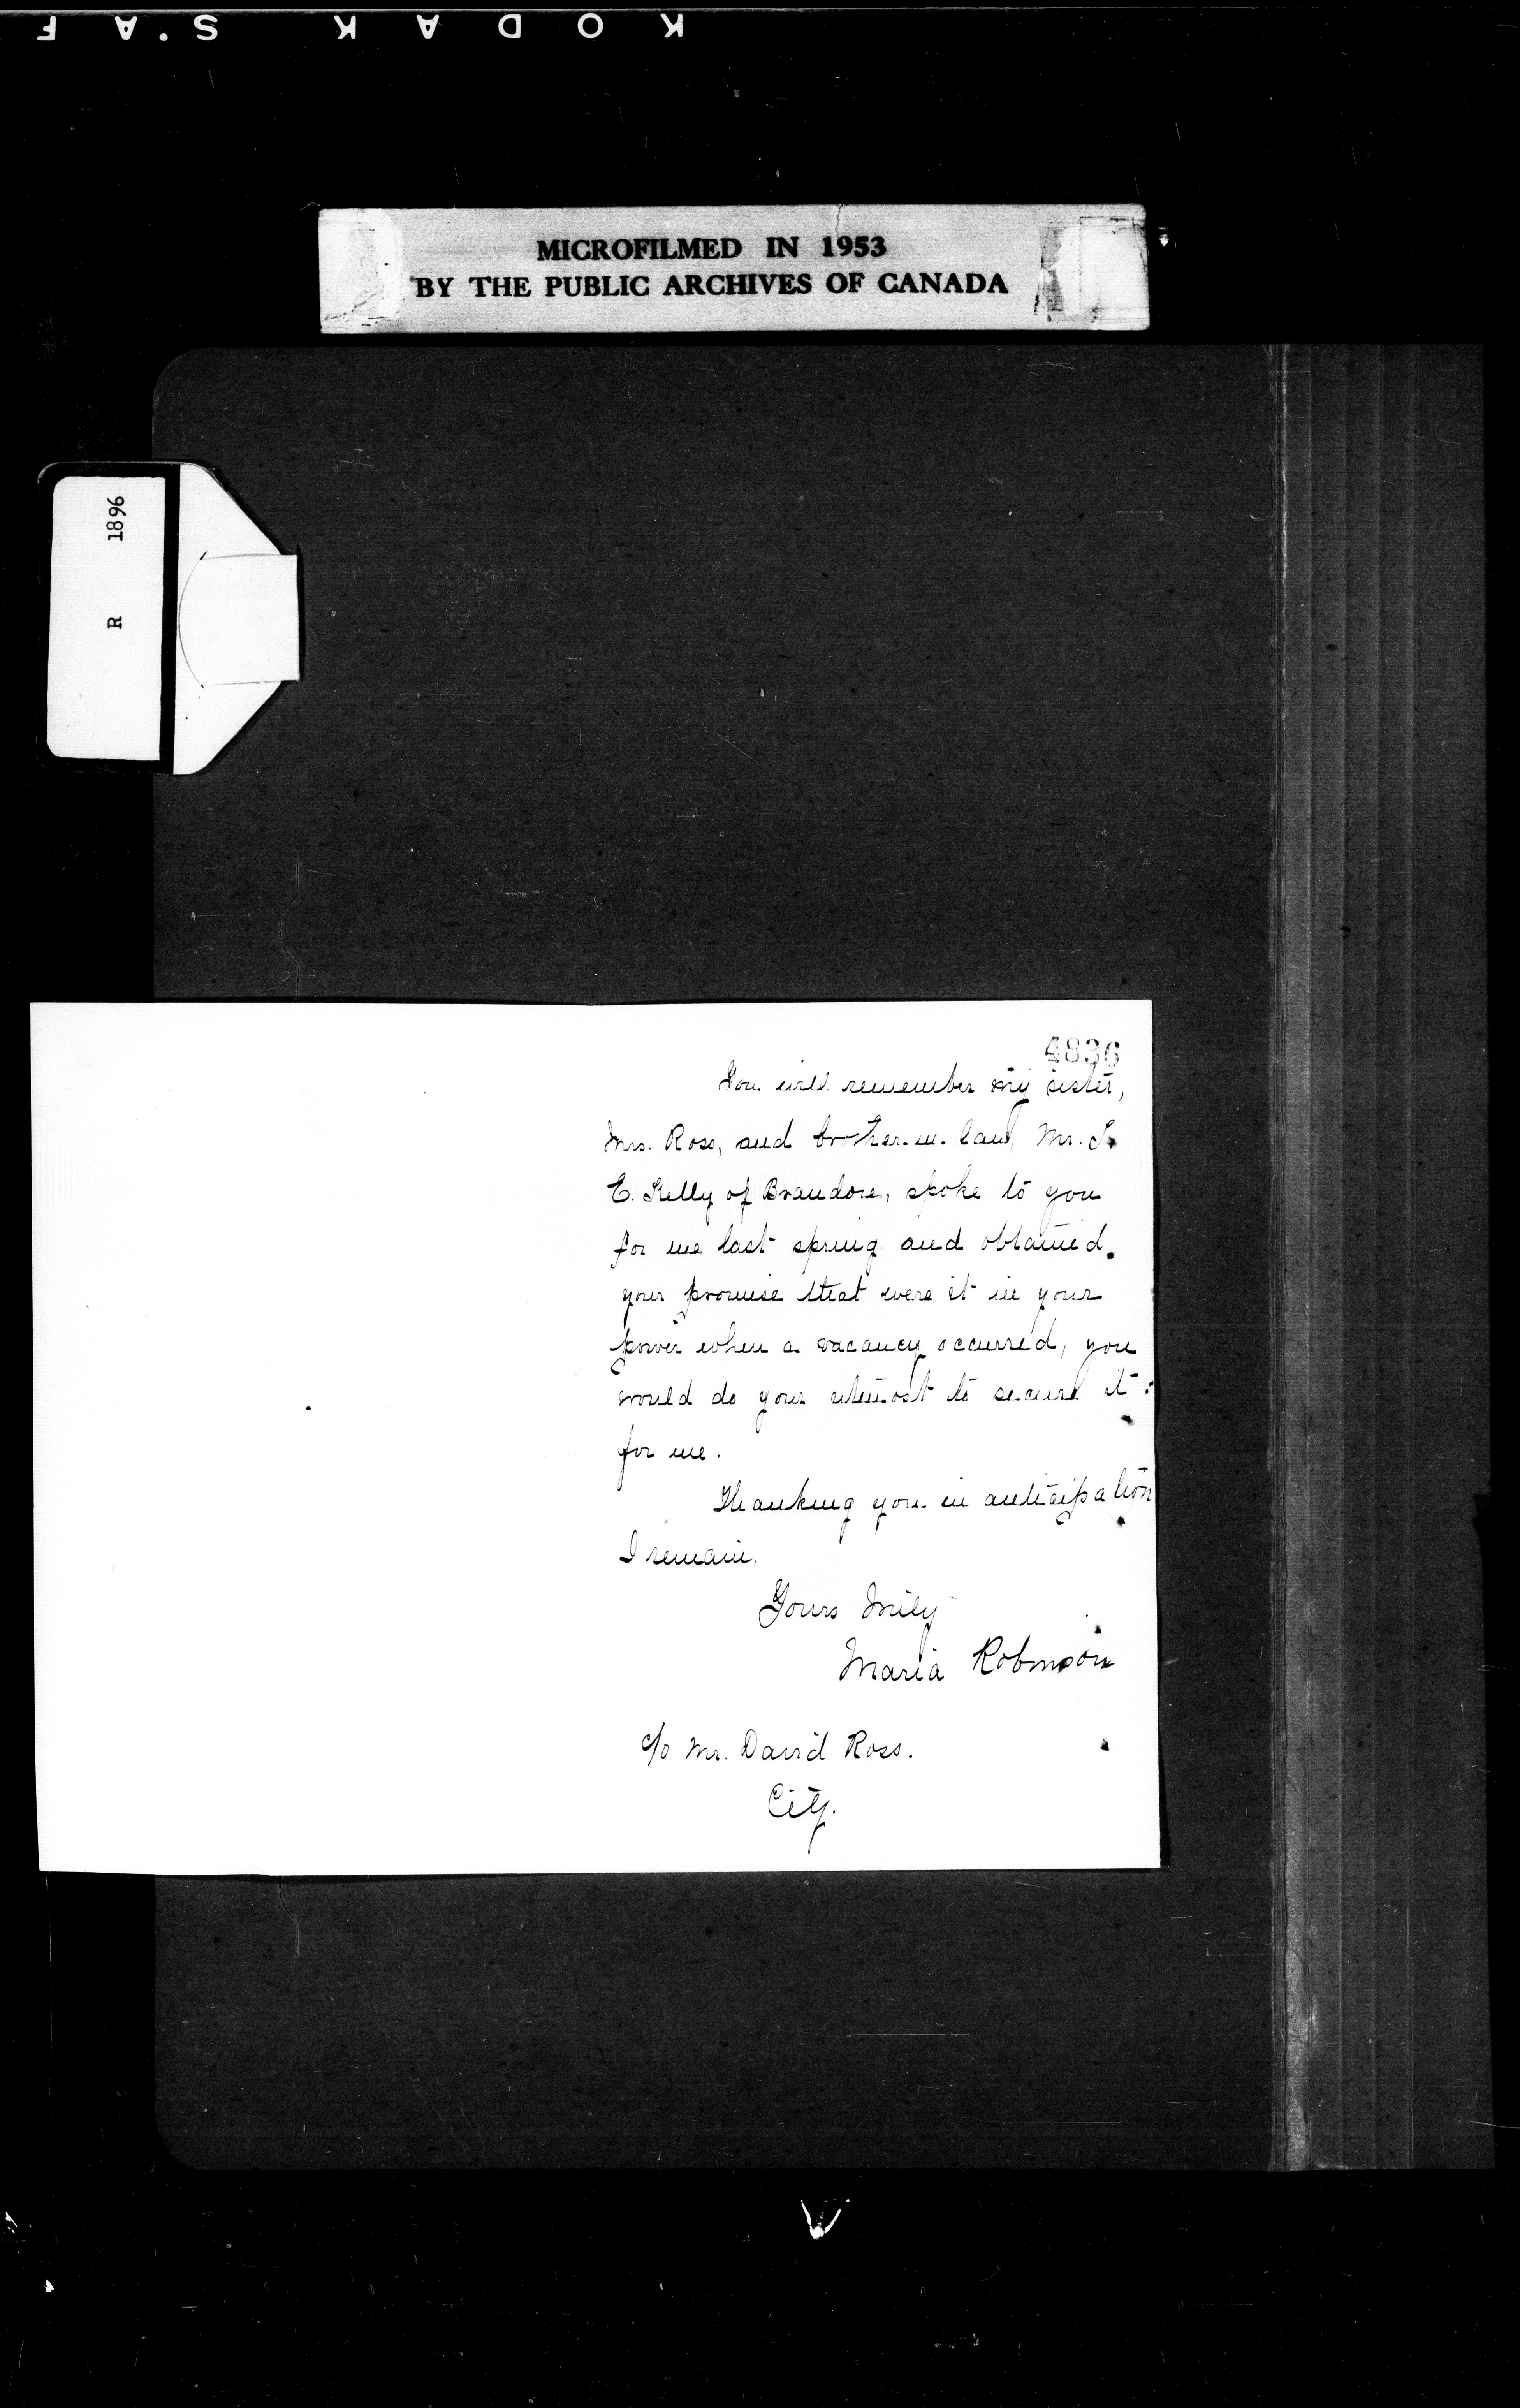 KODAK S.A F
MICROFILMED IN 1953
BY THE PUBLIC ARCHIVES OF CANADA
R 1896
4836
You will remember my sister,
Mrs. Ross, and brother-in-law, Mr.
E. Kelly of Brandon, spoke to you
for me last spring and obtained
your promise that were it in your
power when a vacancy occurred, you
would do your utmost to secure it
for me.
Thanking you in anticipation
I remain,
Yours truly
Maria Robinson
c/o Mr. David Ross.
City.